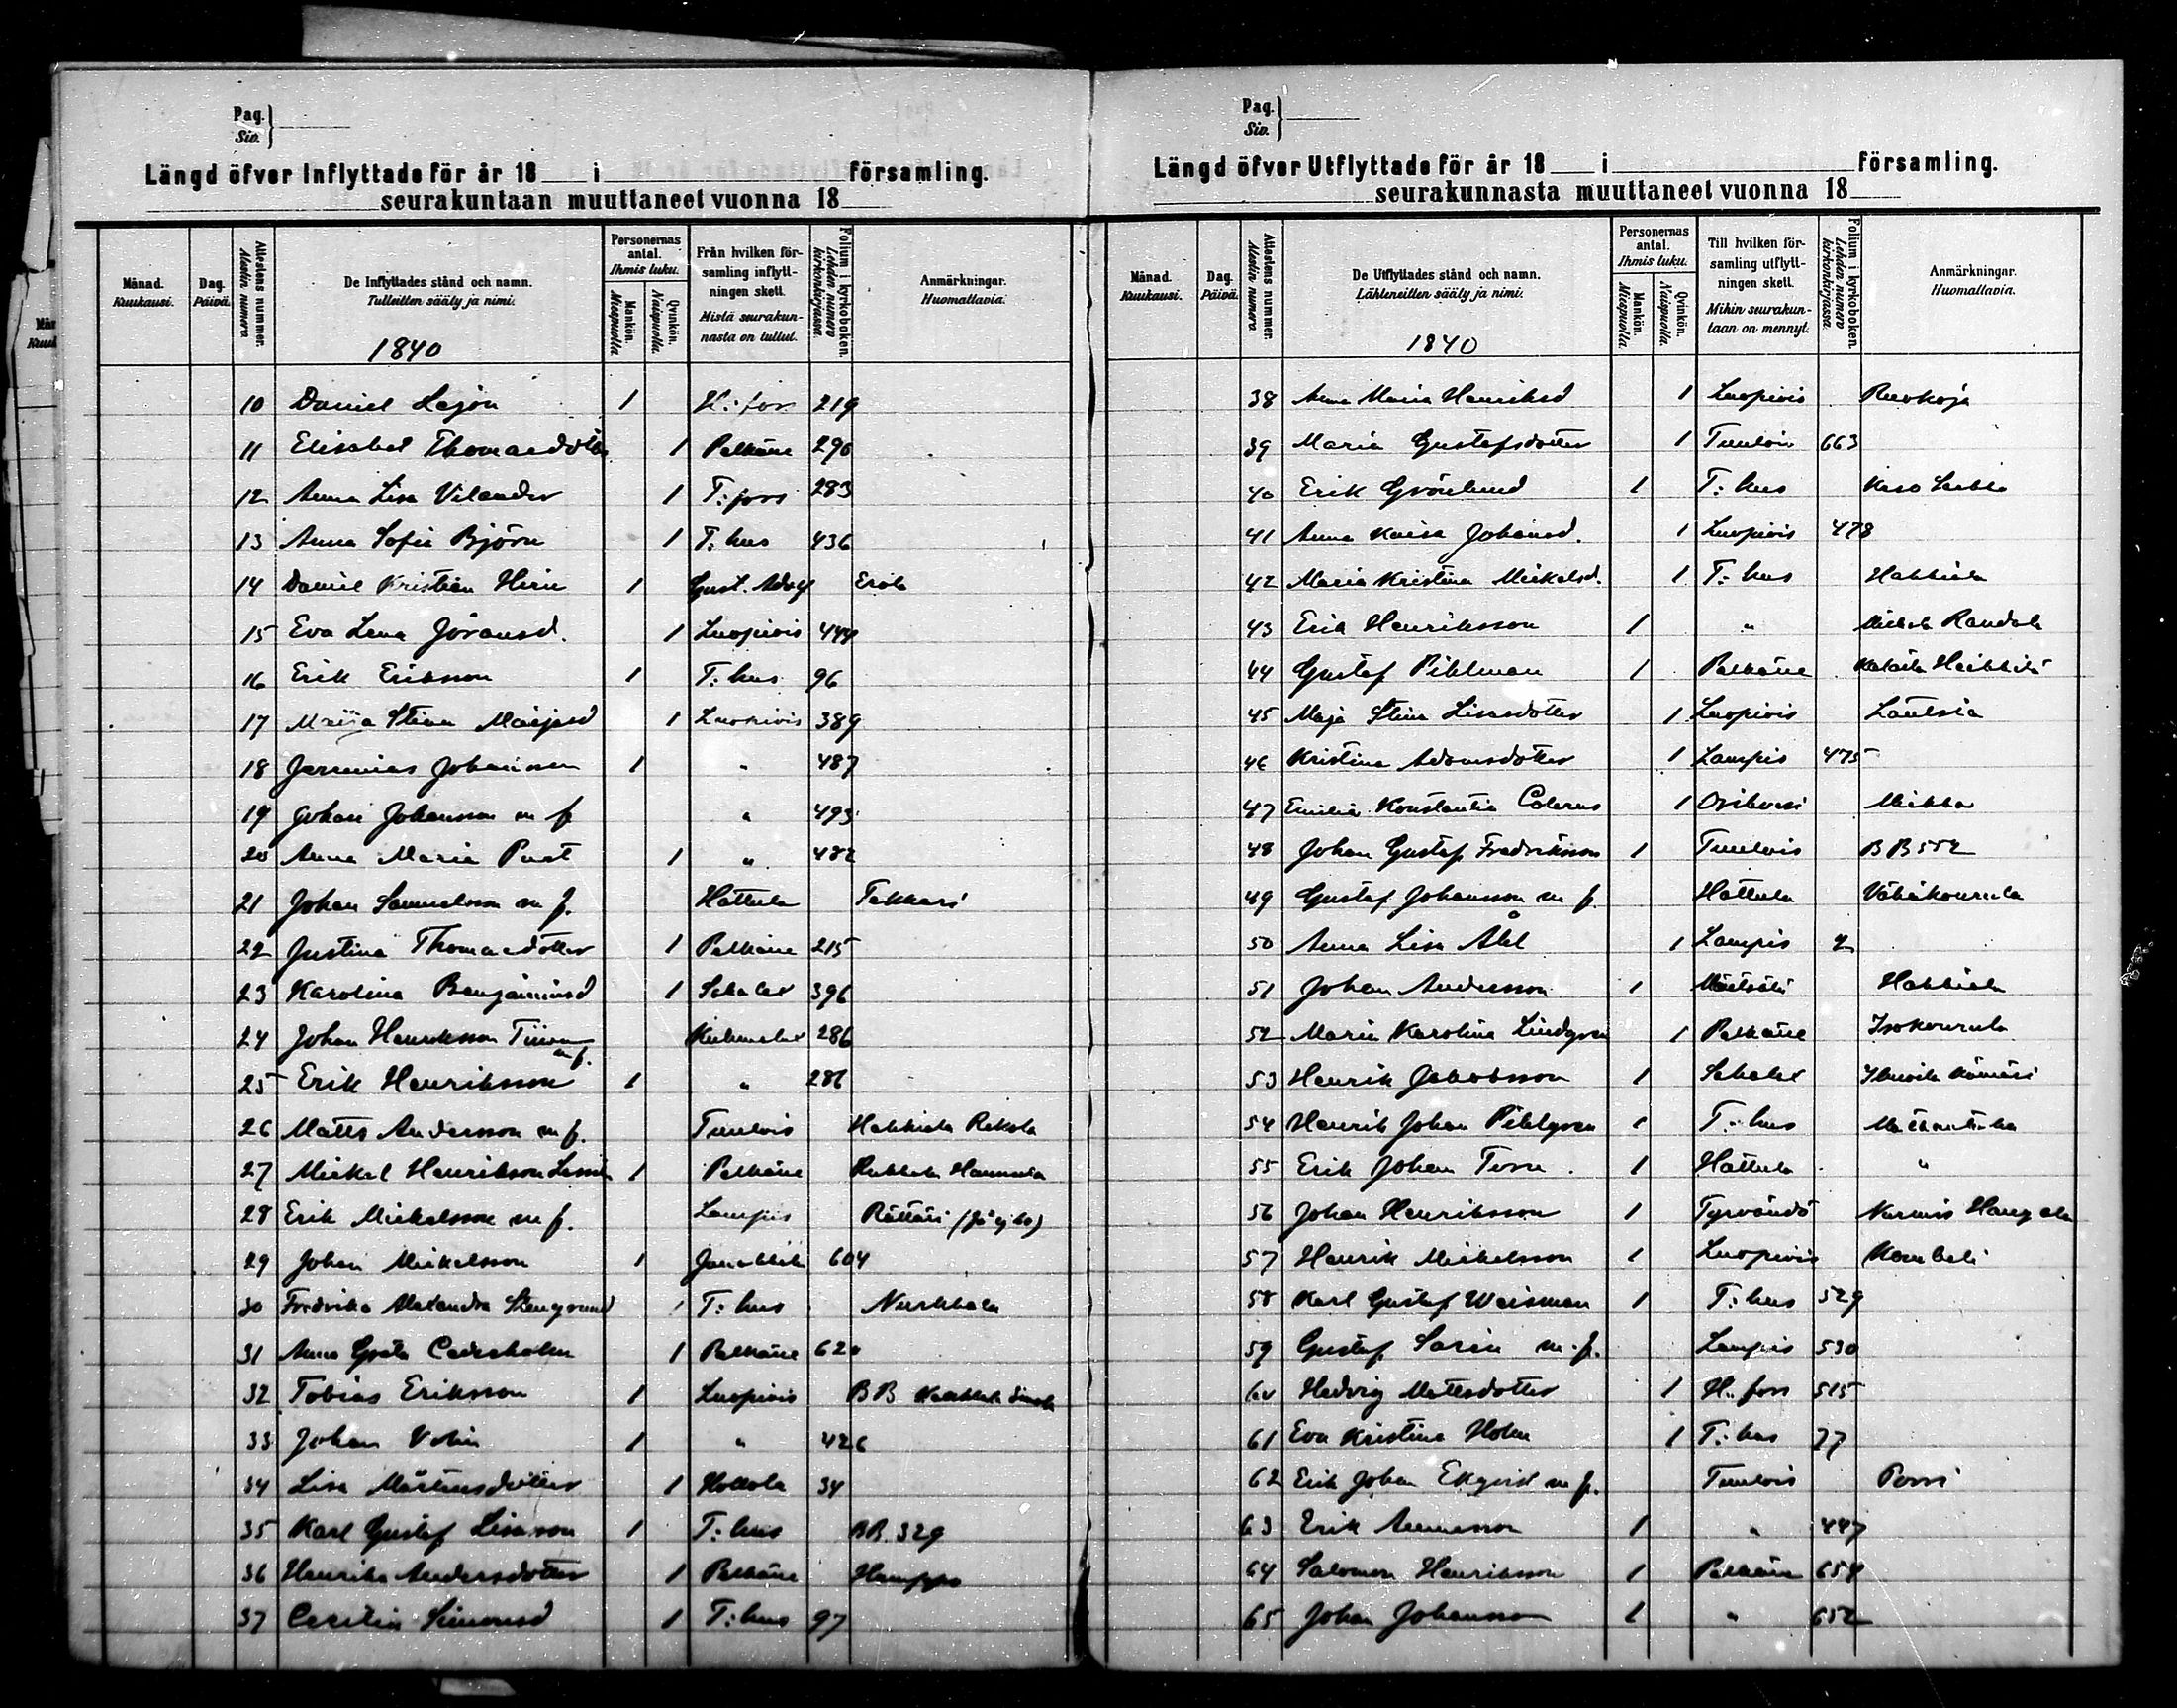 Pag.
Siv.
Längd öfver Inflyttade för år 18 i församling.
seurakuntaan muuttaneet vuonna 18
Månad. Kuukausi.
Dag. Päivä.
Attestens nummer. Alestin numero.
De Inflyttades stånd och namn. Tulleitten sääty ja nimi.
1840
Personernas antal. Ihmis luku.
Mankön. Miespuolia
Qvinkön. Naispuolia.
Från hvilken församling inflyttningen skett. Mistä seurakunnasta on tullut.
Folium i kyrkoboken. Lehden numero kirkonkirjassa.
Anmärkningar. Huomattavia.
10 Daniel Lejon 1 H:fors 219
11 Elisabet Thomasdotter 1 Pelkäne 290
12 Anna Lisa Vilander 1 T:fors 283
13 Anna Sofia Björn 1 T:hus 436
14 Daniel Kristian Hirn 1 Gust. Adolf Erola
15 Eva Lena Göransd. 1 Luopiois 444
16 Erik Eriksson 1 T:hus 96
17 Maija Stina Maijasd 1 Luopiois 389
18 Jeremias Johansson 1 " 487
19 Johan Johansson m f " 493
20 Anna Maria Pust 1 " 482
21 Johan Samuelsson m f. Hattula Takkari
22 Justina Thomasdotter 1 Pelkäne 215
23 Karolina Benjaminsd 1 Sahalax 396
24 Johan Henriksson m f. Kuhmalax 286
25 Erik Henriksson 1 " 286
26 Matts Andersson m f. Tuulois Hakkiala Rekola
27 Mickel Henriksson 1 Pelkäne
28 Erik Mickelsson m f. Lampis Rättäri
29 Johan Mickelsson 1 Janakkala 604
30 Fredrika Alexandra Stengrund 1 T:hus
31 Anna Greta Cederholm 1 Pelkäne 620
32 Tobias Eriksson 1 Luopiois BB
33 Johan Volin 1 " 426
34 Lisa Mårtensdotter 1 Hollola 34
35 Karl Gustaf Lisasson 1 T:hus BB. 329
36 Henrika Andersdotter 1 Pelkäne
37 Cecilia Simonsd 1 T:hus 97
Pag.
Siv.
Längd öfver Utflyttade för år 18 i församling.
seurakunnasta muuttaneet vuonna 18
Månad. Kuukausi.
Dag. Päivä.
Attestens nummer. Alestin numero.
De Utflyttades stånd och namn. Lähteneitten sääty ja nimi.
1840
Personernas antal. Ihmis luku.
Mankön. Miespuolia.
Qvinkön. Naispuolia.
Till hvilken församling utflyttningen skett. Mihin seurakuntaan on mennyt.
Folium i kyrkoboken. Lehden numero kirkonkirjassa.
Anmärkningar. Huomattavia.
38 Anna Maria Henriksd 1 Luopiois
39 Maria Gustafsdotter 1 Tuulois 663
40 Erik Grönlund 1 T:hus
41 Anna Kaisa Johansd. 1 Luopiois 478
42 Maria Kristina Mickelsd. 1 T:hus Hakkiala
43 Erik Henriksson 1 "
44 Gustaf Pihlman 1 Pelkäne
45 Maja Stina Lisasdotter 1 Luopiois Lautsia
46 Kristina Adamsdotter 1 Lampis 475
47 Emilia Konstantia 1 Orihvesi
48 Johan Gustaf Fredriksson 1 Tuulois BB 552
49 Gustaf Johansson m f. Hattula Vähäkouvala
50 Anna Lisa Ahl 1 Lampis 2
51 Johan Andersson 1 Hakkiala
52 Maria Karolina Lindgren 1 Pelkäne
53 Henrik Jakobsson 1 Sahalax
54 Henrik Johan Pihlgren 1 T:hus
55 Erik Johan 1 Hattula "
56 Johan Henriksson 1 Tyrväntö
57 Henrik Mickelsson 1 Luopiois
58 Karl Gustaf Weisman 1 T:hus 529
59 Gustaf Sarin m.f. Lampis 530
60 Hedvig Mattsdotter 1 H:fors 515
61 Eva Kristina Holm 1 T:hus 77
62 Erik Johan Ekqvist m f. Tuulois Porri
63 Erik Annasson 1 " 447
64 Salomon Henriksson 1 Pelkäne 654
65 Johan Johansson 1 " 652